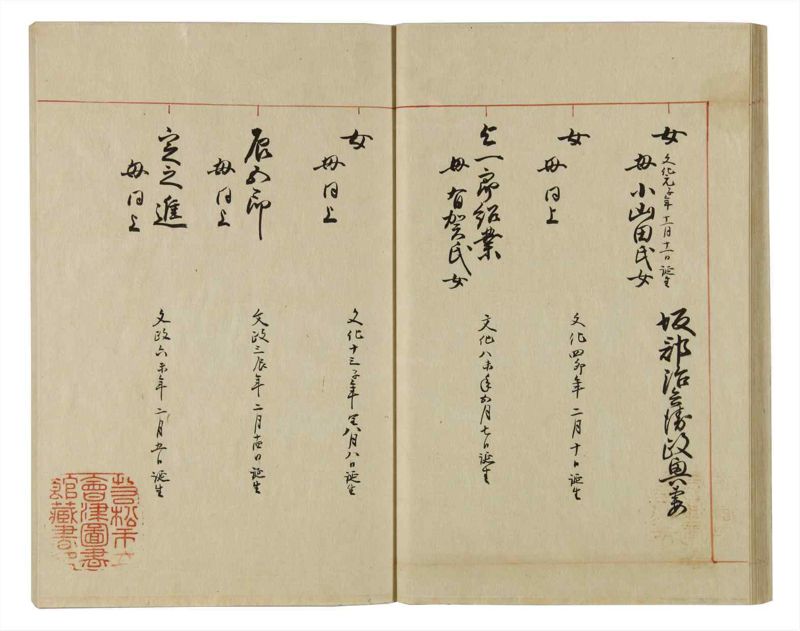 女
文化元子年十一月十一日誕生
母小山田氏女
坂部治兵衛政興妻
女
母同上
文化四卯年二月十日誕生
一郎紹業
母有賀氏女
文化八未年五月七日誕生
女
母同上
文化十三子年閏八月八日誕生
辰五郎
母同上
文政三辰年二月十四日誕生
定之進
母同上
文政六未年二月五日誕生
若松市立
會津圖書
館藏書印